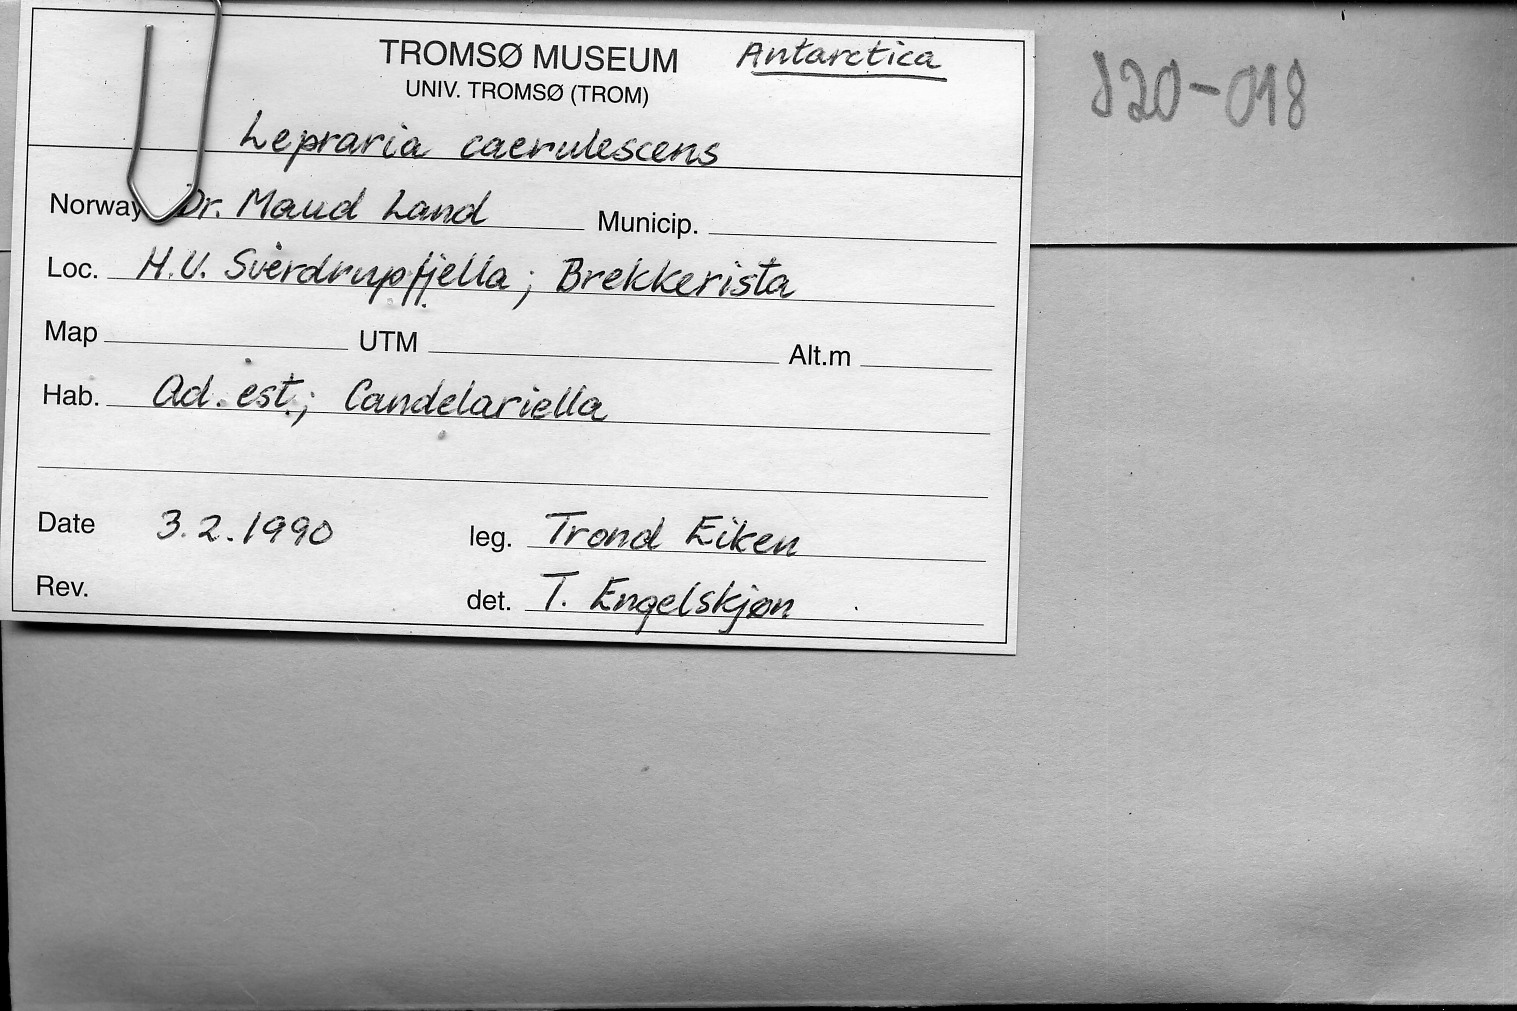 TROMSØ MUSEUM Antarctica
UNIV. TROMSØ (TROM)
Lepraria caerulescens
Norway Dr. Maud Land Municip.
Loc. H.U. Sverdrupfjella; Brekkerista
Map UTM Alt.m
Hab. Ad. est.; Candelariella
Date 3.2.1990 leg. Trond Eiken
Rev. det. T. Engelskjøn
-018